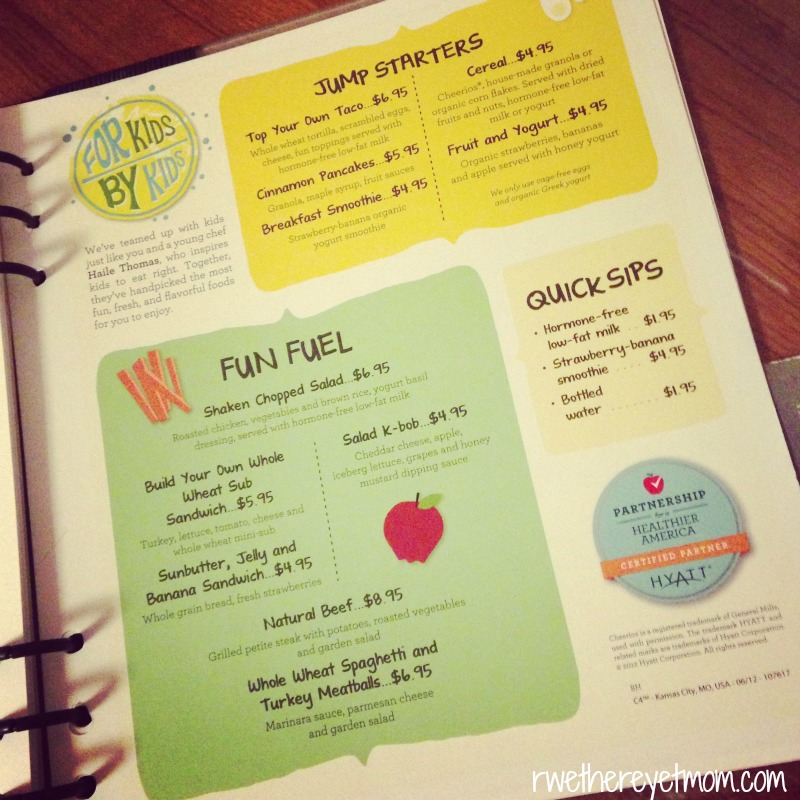 FOR KIDS
BY KIDS
We've teamed up with kids
just like you and a young chef
Haile Thomas, who inspires
kids to eat right. Together,
they've handpicked the most
fun, fresh, and flavorful foods
for you to enjoy.
JUMP STARTERS
Top Your Own Taco...$6.95
Whole wheat tortilla, scrambled eggs,
cheese, fun toppings served with
hormone-free low-fat milk
Cinnamon Pancakes...$5.95
Granola, maple syrup, fruit sauces
Breakfast Smoothie...$4.95
Strawberry-banana organic
yogurt smoothie
Cereal...$4.95
Cheerios®, house-made granola or
organic corn flakes. Served with dried
fruits and nuts, hormone-free low-fat
milk or yogurt
Fruit and Yogurt...$4.95
Organic strawberries, bananas
and apple served with honey yogurt
We only use cage-free eggs
and organic Greek yogurt
FUN FUEL
Shaken Chopped Salad...$6.95
Roasted chicken, vegetables and brown rice, yogurt basil
dressing, served with hormone-free low-fat milk
Build Your Own Whole
Wheat Sub
Sandwich...$5.95
Turkey, lettuce, tomato, cheese and
whole wheat mini-sub
Sunbutter, Jelly and
Banana Sandwich...$4.95
Whole grain bread, fresh strawberries
Salad K-bob...$4.95
Cheddar cheese, apple,
iceberg lettuce, grapes and honey
mustard dipping sauce
Natural Beef...$8.95
Grilled petite steak with potatoes, roasted vegetables
and garden salad
Whole Wheat Spaghetti and
Turkey Meatballs...$6.95
Marinara sauce, parmesan cheese
and garden salad
QUICK SIPS
• Hormone-free
low-fat milk ... $1.95
• Strawberry-banana
smoothie ..... $4.95
• Bottled
water ......... $1.95
PARTNERSHIP
for a
HEALTHIER
AMERICA
CERTIFIED PARTNER
HYATT®
Cheerios is a registered trademark of General Mills,
used with permission. The trademark HYATT and
related marks are trademarks of Hyatt Corporation.
©2012 Hyatt Corporation. All rights reserved.
BH
C4™ - Kansas City, MO, USA - 06/12 - 107617
rwethereyetmom.com